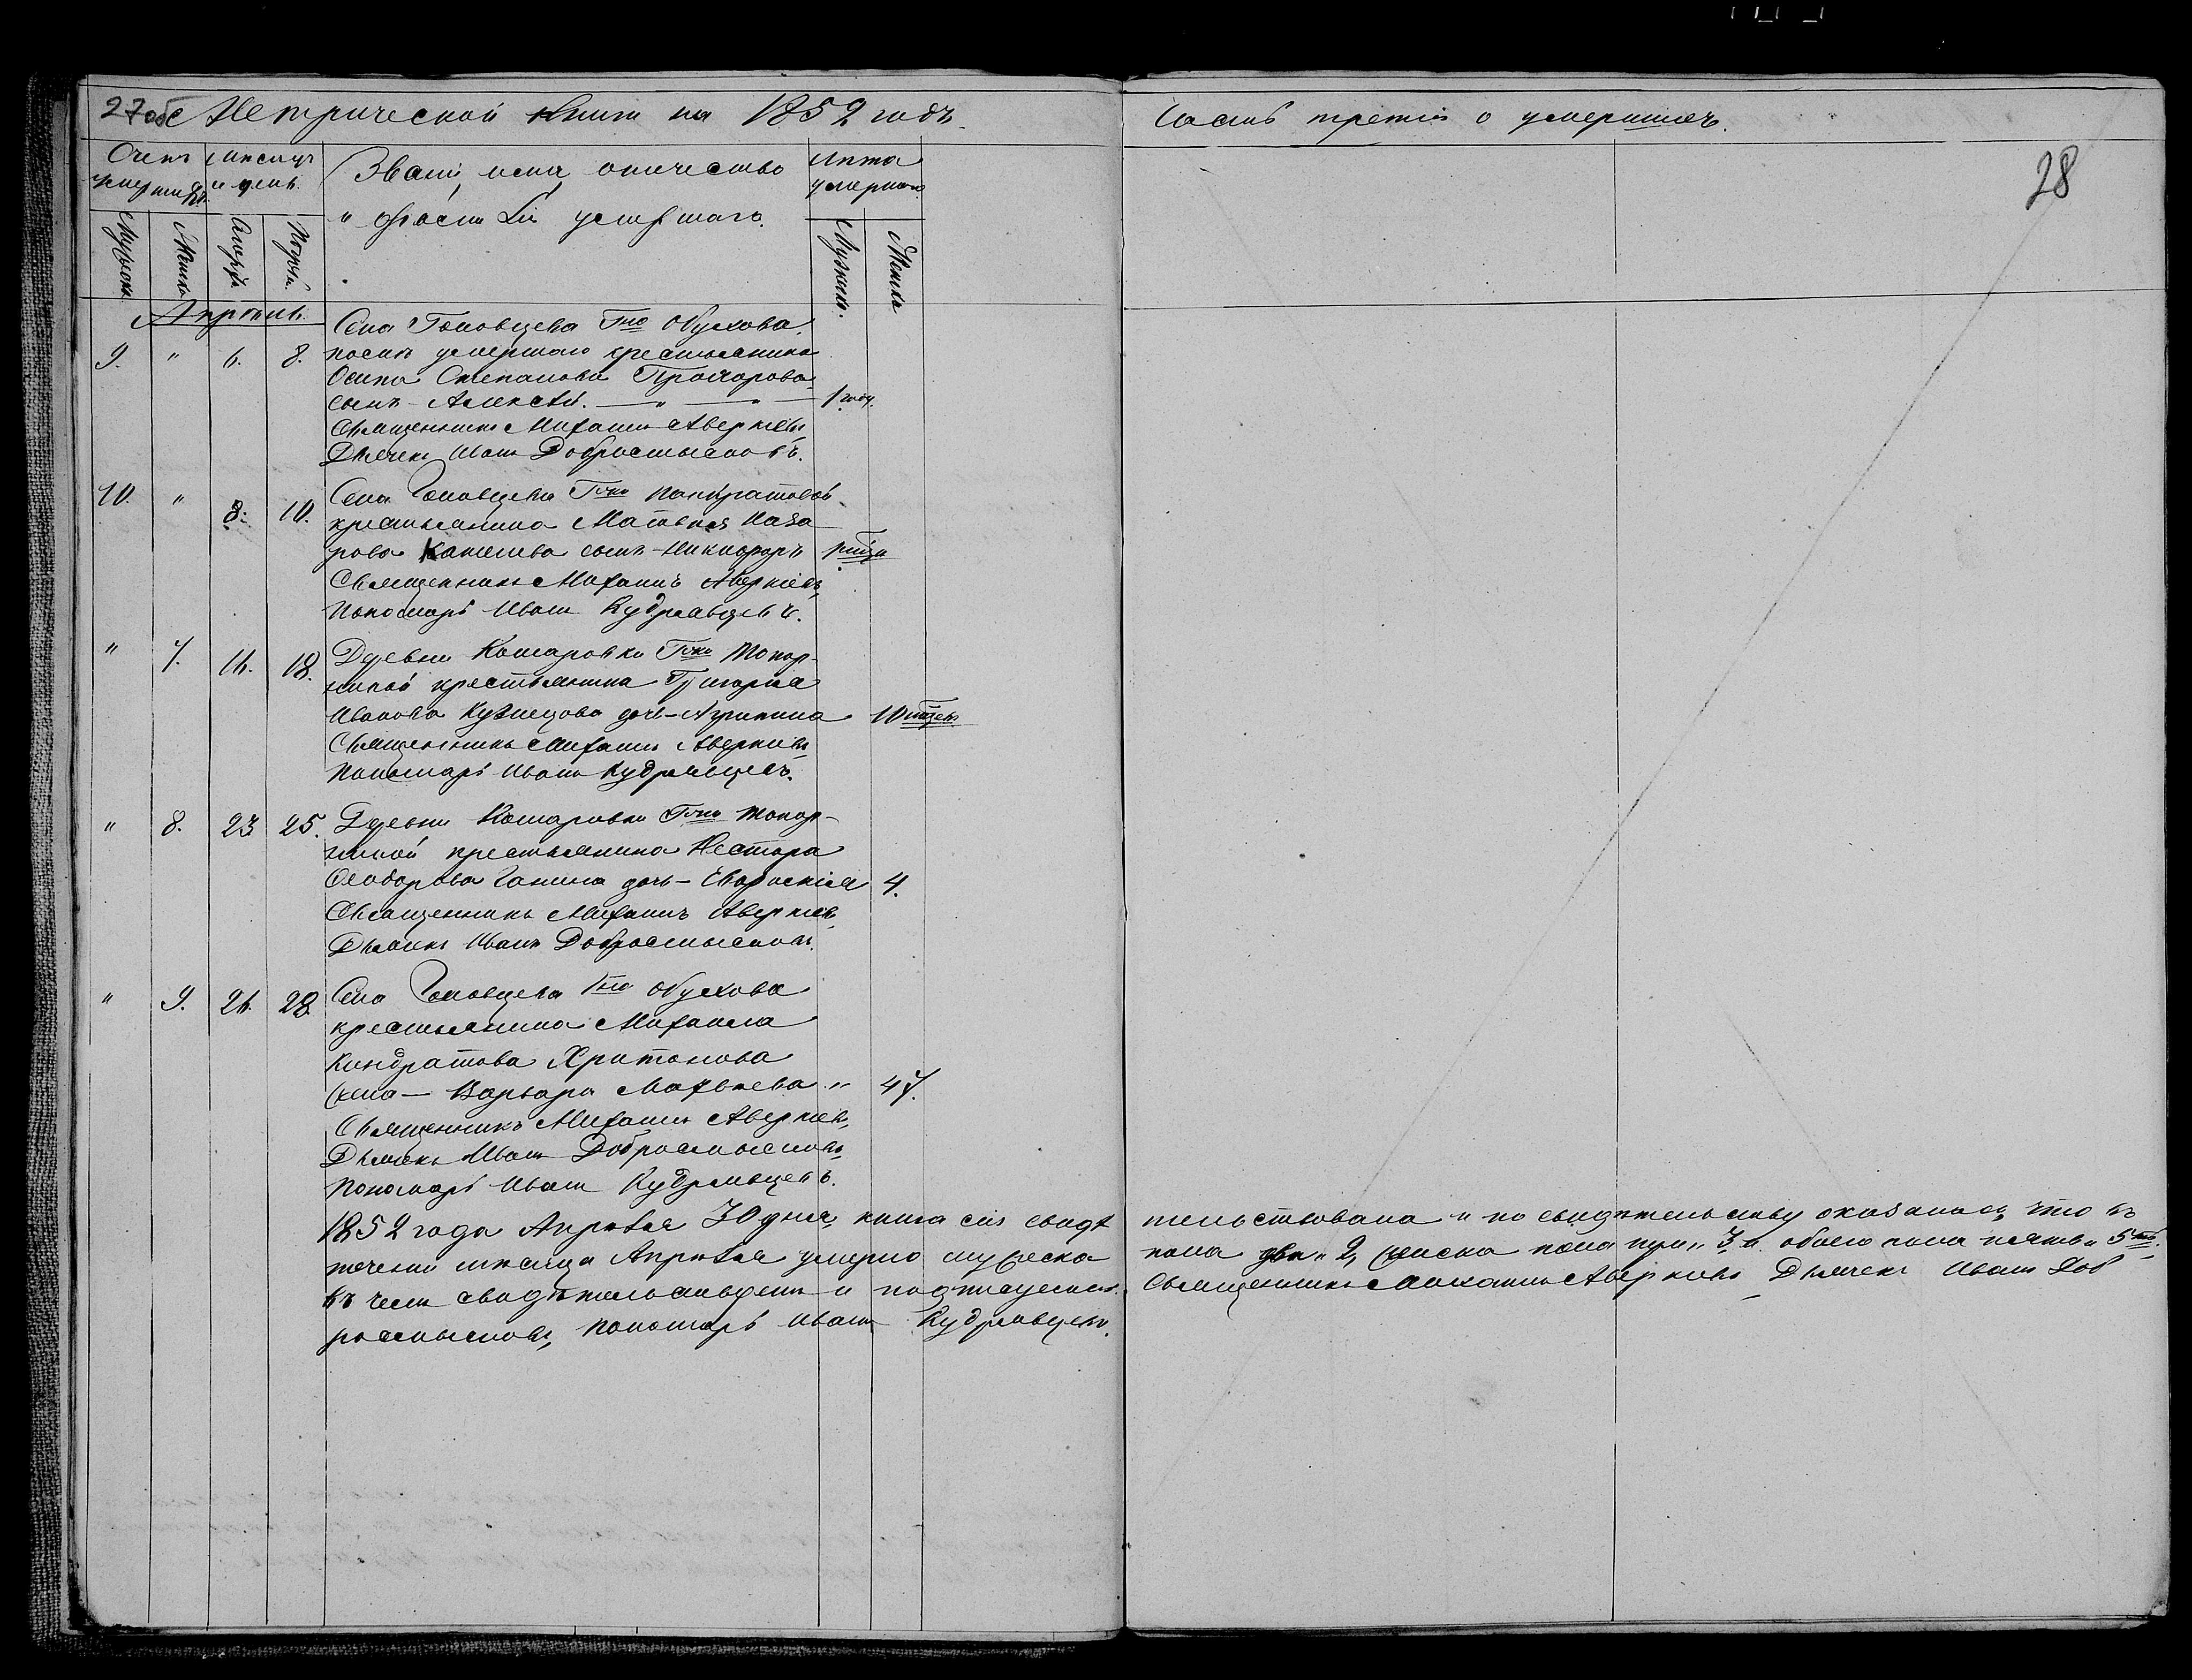 27об Метрической книги на 1852 годъ.
Часть третiя о умершихъ.
28
Счетъ умершихъ.
Мѣсяцъ и день.
Званiе, имя, отчество
и фамилiя умершаго.
Лѣта умершаго
Мужеска.
Женска
Смерти
Погреб.
Мужеска.
Женска
Апрѣль.
Села Головцева Гна Обухова
9. " 6. 8. послѣ умершаго крестьянина
Осипа Степанова Прохорова
сынъ – Алексѣй. — " — " — 1 году.
Священникъ Михаилъ Аверкiевъ
Дьячекъ Иванъ Добросмысловъ.
10. " 8. 10. Села Головцева Гжи Панкратовой
крестьянина Матвея Наза
рова Канаева сынъ – Никифоръ
Священникъ Михаилъ Аверкiевъ,
Пономарь Иванъ Кудрявцевъ.
" 7. 16. 18. Деревни Комаровки Гжи Топор-
ниной крестьянина Григорья
Иванова Кузнецова дочь – Агрипина 10 мѣсяц
Священникъ Михаилъ Аверкiевъ
Пономарь Иванъ Кудрявцевъ.
" 8. 23 25. Деревни Комаровки Гжи Топор-
ниной крестьянина Нестора
Ѳеодорова Ганина дочь – Евфросинiя 4.
Священникъ Михаилъ Аверкiевъ,
Дьячекъ Иванъ Добросмысловъ.
" 9. 26. 28. Села Головцева Гна Обухова
крестьянина Михаила
Кондратова Хритонова
жена – Варвара Матвѣева " 47.
Священникъ Михаилъ Аверкiевъ,
Дьячекъ Иванъ Добросмысловъ
Пономарь Иванъ Кудрявцевъ.
1852 года Апрѣля 30 дня, книга сiя свидѣтельствована и по свидѣтельству оказалось, что въ
теченiи мѣсяца Апрѣля умерло мужеска пола два " 2, женска пола три " 3 а обоего пола пять " 5ть.
въ чемъ свидѣтельствуемъ и подписуемся. Священникъ Михаилъ Аверкiевъ Дьячекъ Иванъ Доб
росмысловъ, Пономарь Иванъ Кудрявцевъ.